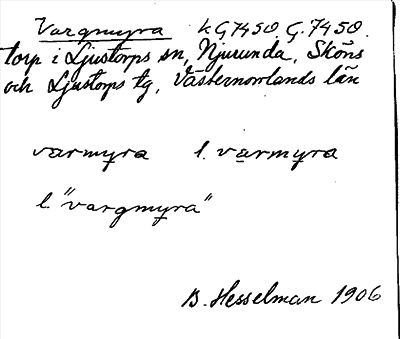 Vargmyra kG7450. G.7450.
torp i Ljustorps sn, Njurunda, Sköns
och Ljustorps tg, Västernorrlands län
varmyra l. varmyra
l. "vargmyra"
B. Hesselman 1906